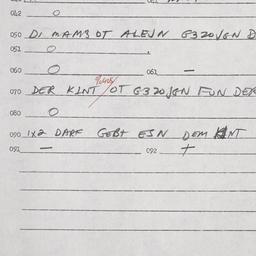 042 O
050 DI MAMS OT ALEJN G320JGN D
051 O
060 O 061 —
070 DER KINT/OT G320JGN FUN DER
080 O
090 1x2 DARF GEBT ESN DEM KINT
091 — 092 +